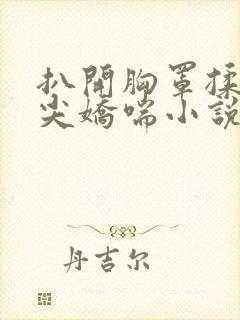 扒開胸罩揉
尖嬌喘小說
丹吉尔